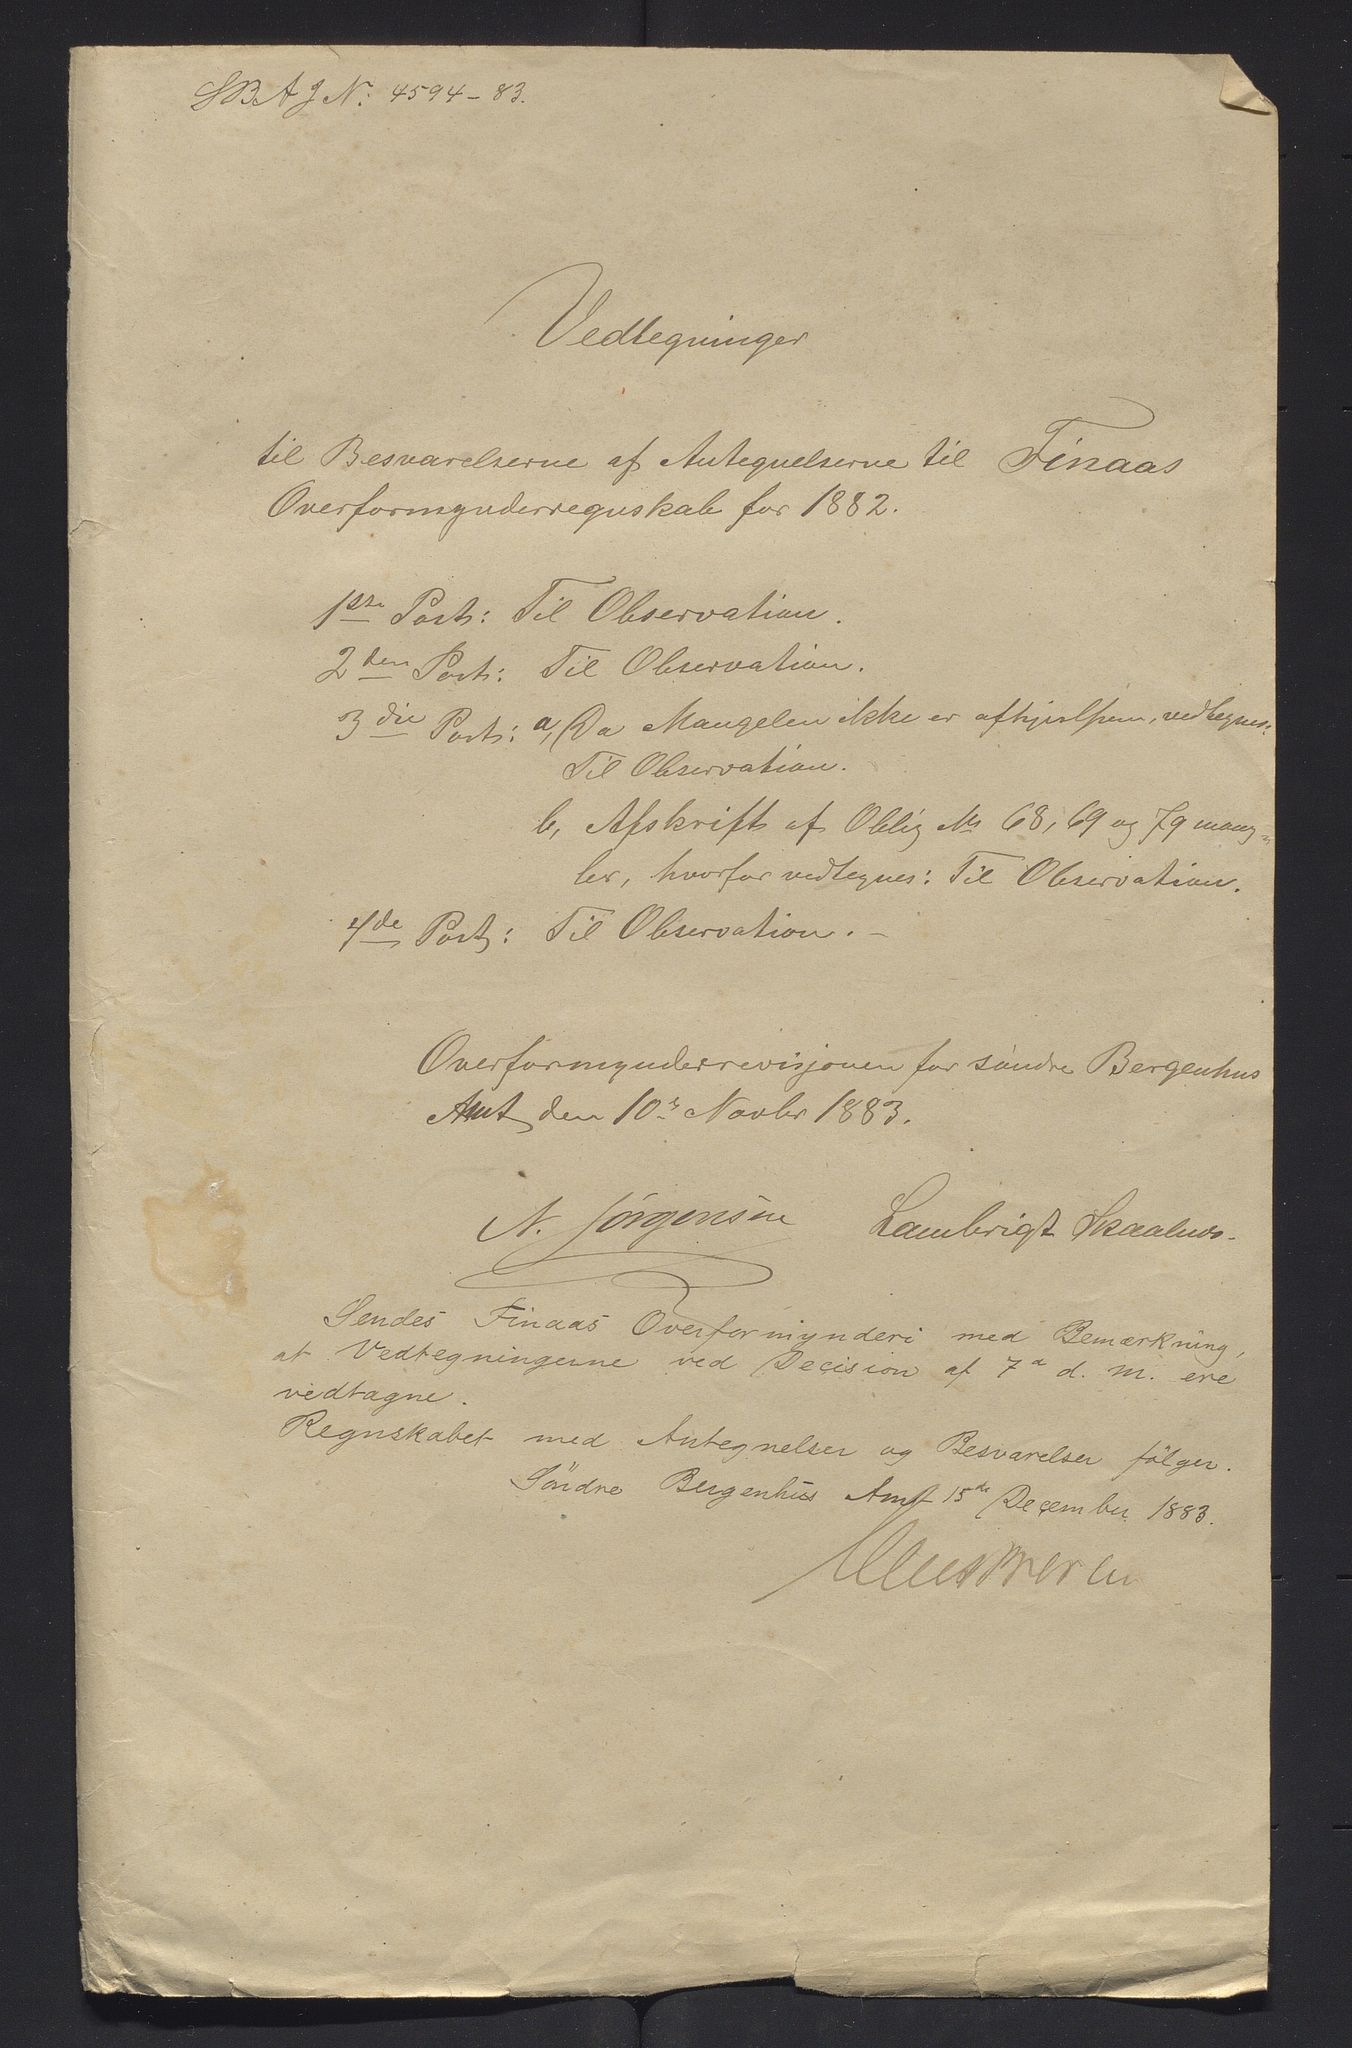 SBAJN: 4594-83.
Vedtegninger
til Besvarelserne af Antegnelserne til Finaas
Overformynderregnskab for 1882.
1ste Post: Til Observation.
2den Post: Til Observation.
3die Post: a, Da Mangelen ikke er afhjulpen, vedtegnes:
Til Observation.
b, Afskrift af Oblig No 68, 69 og 79 mang-
ler, hvorfor vedtegnes: Til Observation.
4de Post: Til Observation. -
Overformynderrevisjonen for søndre Bergenhus
Amt, den 10. Novbr 1883.
N. Jörgensen Lambrigt
Sendes Finaas Overformynderi med Bemærkning,
at Vedtegningerne ved Decision af 7de d. M. ere
vedtagne.
Regnskabet med Antegnelser og Besvarelser fölger.
Söndre Bergenhus Amt 15de December 1883.